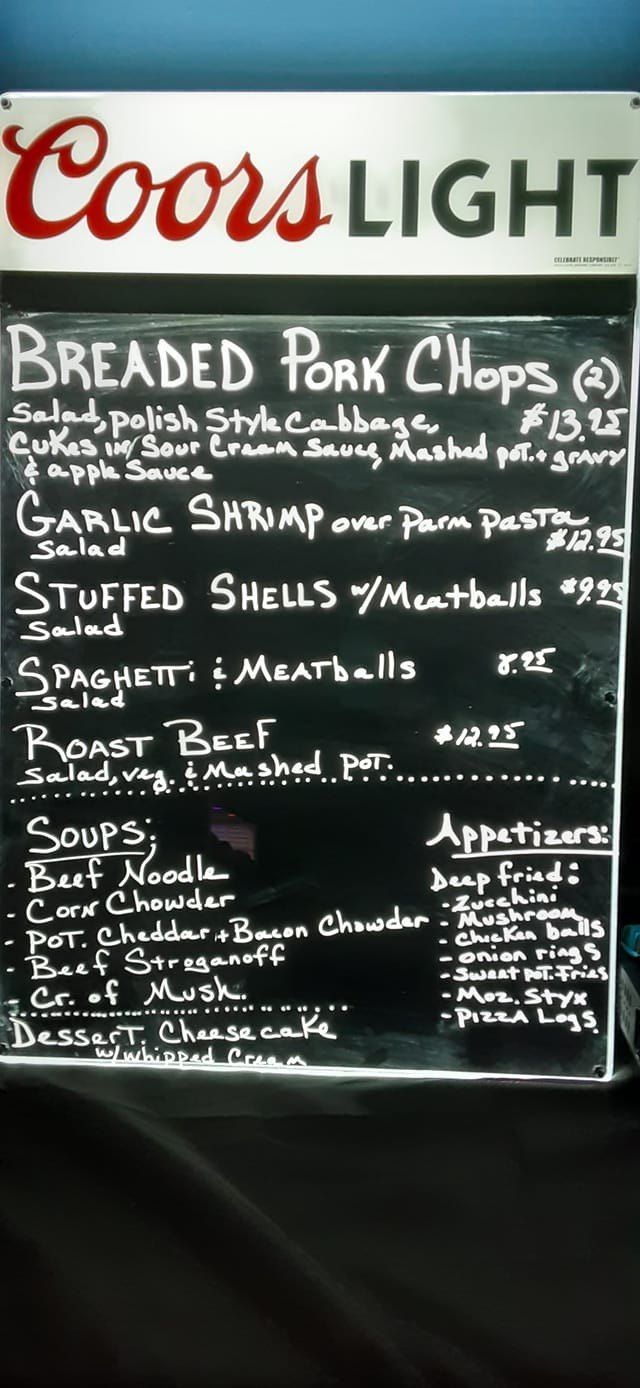 Coors LIGHT
CELEBRATE RESPONSIBLY
BREADED PORK CHOPS (2)
Salad, Polish Style Cabbage, $13.95
Cukes in/ Sour Cream Sauce, Mashed pot. + gravy
& apple Sauce
GARLIC SHRIMP over Parm Pasta
Salad $12.95
STUFFED SHELLS w/Meatballs $9.95
Salad
SPAGHETTi & MEATballs 8.95
Salad
ROAST BEEF $12.95
Salad, veg. & Mashed POT.
SOUPS:
- Beef Noodle
- Corn Chowder
- POT. Cheddar + Bacon Chowder
- Beef Stroganoff
- Cr. of Mush.
Dessert. Cheesecake
w/whipped Cream
Appetizers:
Deep fried:
- Zucchini
- Mushroom
- Chicken balls
- onion rings
- Sweet pot. Fries
- Moz. Styx
- Pizza Logs